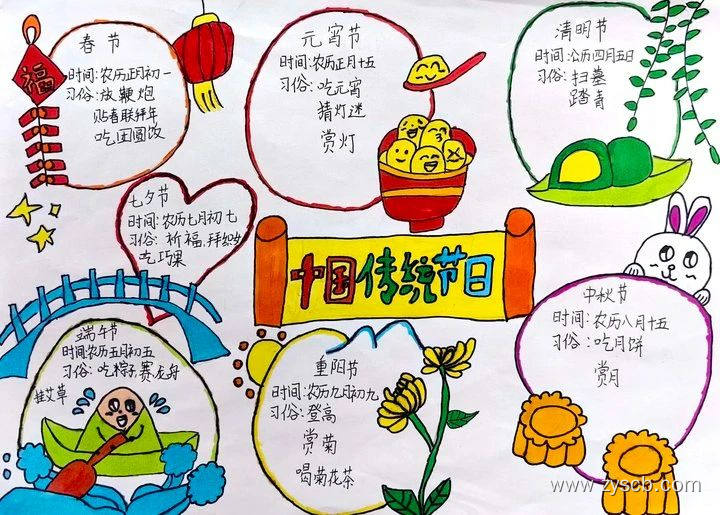 福
春节
时间:农历正月初一
习俗:放鞭炮
贴春联拜年
吃团圆饭
元宵节
时间:农历正月十五
习俗:吃元宵
猜灯迷
赏灯
清明节
时间:公历四月五日
习俗:扫墓
踏青
七夕节
时间:农历七月初七
习俗:祈福,拜织女
吃巧果
中国传统节日
端午节
时间:农历五月初五
习俗:吃粽子赛龙舟
挂艾草
重阳节
时间:农历九月初九
习俗:登高
赏菊
喝菊花茶
中秋节
时间:农历八月十五
习俗:吃月饼
赏月
www.zyscb.com